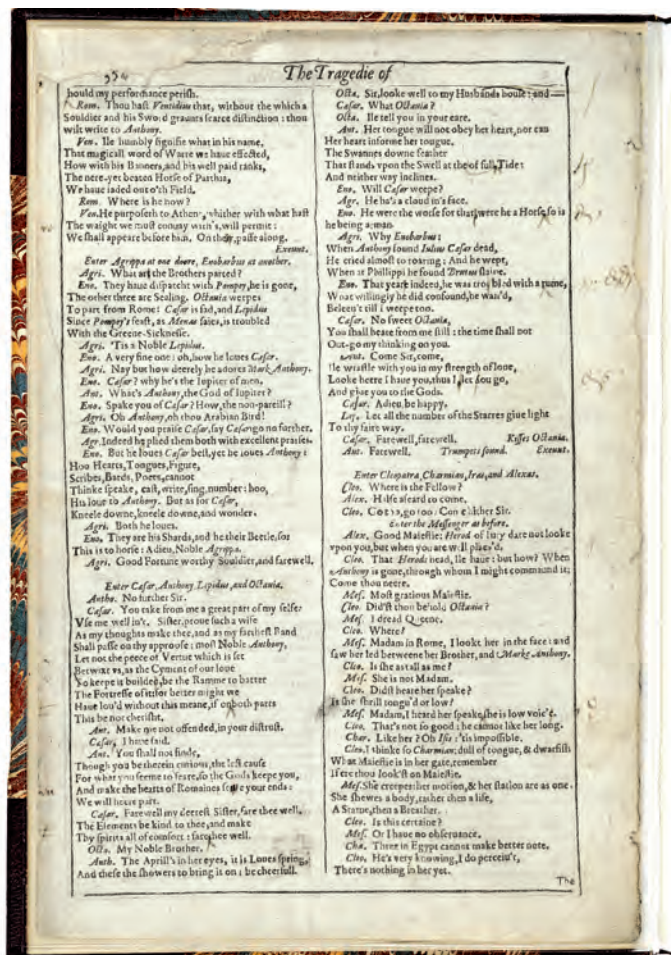 354
The Tragedie of
hould my performance perish.
Rom. Thou hast Ventidius that, without the which a
Souldier and his Sword graunts scarce distinction: thou
wilt write to Anthony.
Ven. Ile humbly signifie what in his name,
That magicall word of Warre we haue effected,
How with his Banners, and his well paid ranks,
The nere-yet beaten Horse of Parthia,
We haue iaded out o'th Field.
Rom. Where is he now?
Ven. He purposeth to Athens, whither with what hast
The waight we must conuay with's, will permit:
We shall appeare before him. On there, passe along.
Exeunt.
Enter Agrippa at one doore, Enobarbus at another.
Agri. What are the Brothers parted?
Eno. They haue dispatcht with Pompey, he is gone,
The other three are Sealing. Octauia weepes
To part from Rome: Cæsar is sad, and Lepidus
Since Pompey's feast, as Menas saies, is troubled
With the Greene-Sicknesse.
Agri. 'Tis a Noble Lepidus.
Eno. A very fine one: oh, how he loues Cæsar.
Agri. Nay but how deerely he adores Mark Anthony.
Eno. Cæsar? why he's the Iupiter of men.
Ant. What's Anthony, the God of Iupiter?
Eno. Spake you of Cæsar? How, the non-pareill?
Agri. Oh Anthony, oh thou Arabian Bird!
Eno. Would you praise Cæsar, say Cæsar go no further.
Agr. Indeed he plied them both with excellent praises.
Eno. But he loues Cæsar best, yet he loues Anthony:
Hoo Hearts, Tongues, Figure,
Scribes, Bards, Poets, cannot
Thinke speake, cast, write, sing, number: hoo,
His loue to Anthony. But as for Cæsar,
Kneele downe, kneele downe, and wonder.
Agri. Both he loues.
Eno. They are his Shards, and he their Beetle, so:
This is to horse: Adieu, Noble Agrippa.
Agri. Good Fortune worthy Souldier, and farewell.
Enter Cæsar, Anthony, Lepidus, and Octauia.
Antho. No further Sir.
Cæsar. You take from me a great part of my selfe:
Vse me well in't. Sister, proue such a wife
As my thoughts make thee, and as my farthest Band
Shall passe on thy approofe: most Noble Anthony,
Let not the peece of Vertue which is set
Betwixt vs, as the Cyment of our loue
To keepe it builded, be the Ramme to batter
The Fortresse of it: for better might we
Haue lou'd without this meane, if on both parts
This be not cherisht.
Ant. Make me not offended, in your distrust.
Cæsar. I haue said.
Ant. You shall not finde,
Though you be therein curious, the lest cause
For what you seeme to feare, so the Gods keepe you,
And make the hearts of Romaines serue your ends:
We will heere part.
Cæsar. Farewell my deerest Sister, fare thee well,
The Elements be kind to thee, and make
Thy spirits all of comfort: fare thee well.
Octa. My Noble Brother.
Anth. The Aprill's in her eyes, it is Loues spring,
And these the showers to bring it on: be cheerfull.
Octa. Sir, looke well to my Husbands house: and
Cæsar. What Octauia?
Octa. Ile tell you in your eare.
Ant. Her tongue will not obey her heart, nor can
Her heart informe her tongue.
The Swannes downe feather
That stands vpon the Swell at the of full Tide:
And neither way inclines.
Eno. Will Cæsar weepe?
Agr. He ha's a cloud in's face.
Eno. He were the worse for that were he a Horse, so is
he being a man.
Agri. Why Enobarbus:
When Anthony found Iulius Cæsar dead,
He cried almost to roaring: And he wept,
When at Phillippi he found Brutus slaine.
Eno. That year indeed, he was trobled with a rume,
What willingly he did confound, he wail'd,
Beleeu't till I weepe too.
Cæsar. No sweet Octauia,
You shall heare from me still: the time shall not
Out-go my thinking on you.
Ant. Come Sir, come,
Ile wrastle with you in my strength of loue,
Looke heere I haue you, thus I let you go,
And giue you to the Gods.
Cæsar. Adieu, be happy.
Lep. Let all the number of the Starres giue light
To thy faire way.
Cæsar. Farewell, farewell. Kisses Octauia.
Ant. Farewell. Trumpets sound. Exeunt.
Enter Cleopatra, Charmian, Iras, and Alexas.
Cleo. Where is the Fellow?
Alex. Halfe afeard to come.
Cleo. Go too, go too: Come hither Sir.
Enter the Messenger as before.
Alex. Good Maiestie: Herod of Iury dare not looke
vpon you, but when you are well pleas'd.
Cleo. That Herods head, Ile haue: but how? When
Anthony is gone, through whom I might commaund it:
Come thou neere.
Mes. Most gratious Maiestie.
Cleo. Did'st thou behold Octauia?
Mes. I dread Queene.
Cleo. Where?
Mes. Madam in Rome, I lookt her in the face: and
saw her led betweene her Brother, and Marke Anthony.
Cleo. Is she as tall as me?
Mes. She is not Madam.
Cleo. Didst heare her speake?
Is she shrill tongu'd or low?
Mes. Madam, I heard her speake, she is low voic'd.
Cleo. That's not so good: he cannot like her long.
Char. Like her? Oh Isis: 'tis impossible.
Cleo. I thinke so Charmian: dull of tongue, & dwarfish
What Maiestie is in her gate, remember
If ere thou look'st on Maiestie.
Mes. She creepes: her motion, & her station are as one.
She shewes a body, rather then a life,
A Statue, then a Breather.
Cleo. Is this certaine?
Mes. Or I haue no obseruance.
Cha. Three in Egypt cannot make better note.
Cleo. He's very knowing, I do perceiu't,
There's nothing in her yet.
The